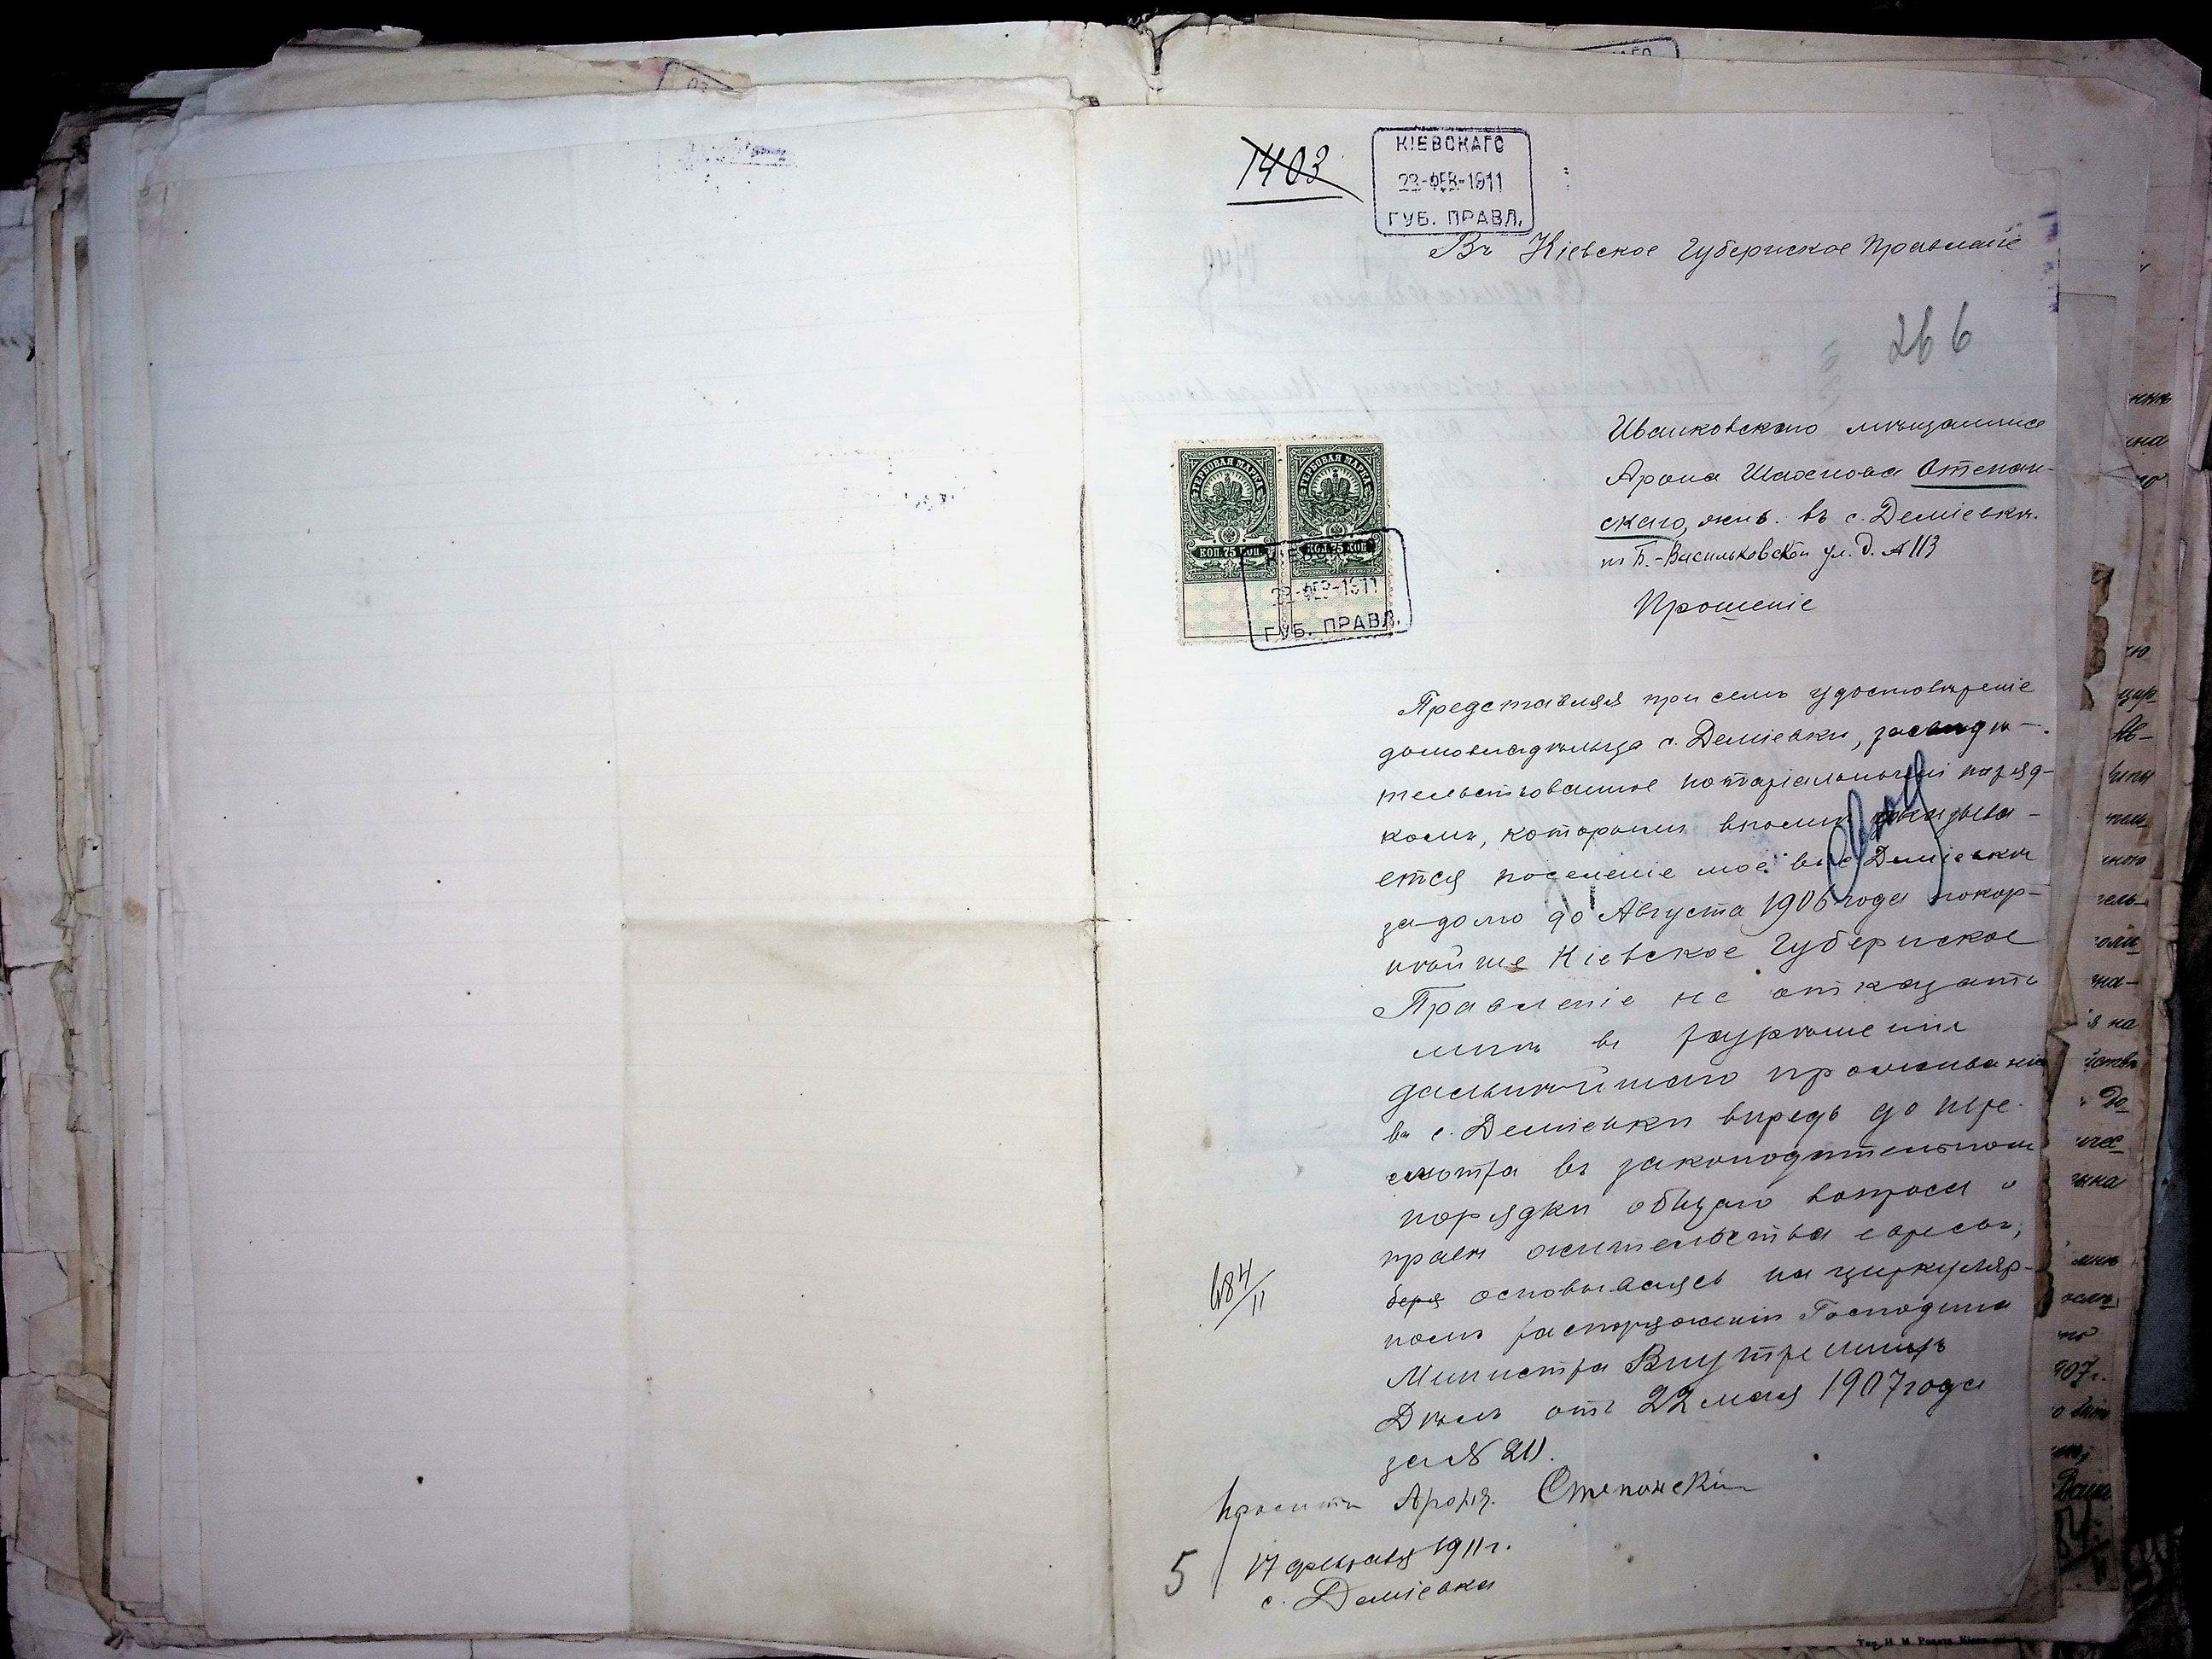 1403
КІЕВСКАГО
23-ФЕВ-1911
ГУБ. ПРАВЛ.
Въ Кіевское Губернское Правленіе
266
Иваньковскаго мѣщанина
Арона Шахнова Степан-
скаго, жив. въ с. Деміевкѣ.
по Б.-Васильковской ул. д. № 113
Прошеніе
ГЕРБОВАЯ МАРКА
КОП. 75 КОП.
ГЕРБОВАЯ МАРКА
КОП. 75 КОП.
КІЕВСКАГО
23-ФЕВ-1911
ГУБ. ПРАВЛ.
Представляя при семъ удостовѣреніе
домовладѣльца с. Деміевки, засвидѣ-
тельствованное нотаріальнымъ поряд-
комъ, которымъ вполнѣ доказыва-
ется поселеніе мое въ с. Деміевкѣ
задолго до Августа 1906 года покор-
нѣйше Кіевское Губернское
Правленіе не отказать
мнѣ въ разрѣшеніи
дальнѣйшаго проживанія
въ с. Деміевки впредь до пере-
смотра въ законодательномъ
порядкѣ общаго вопроса о
правѣ жительства евреевъ,
беря основываясь на циркуляр-
номъ распоряженіи Господина
Министра Внутреннихъ
Дѣлъ отъ 22 мая 1907 года
за № 20.
Проситъ Аронъ. Степанскій
484/11
17 февраля 1911 г.
5
с. Деміевка